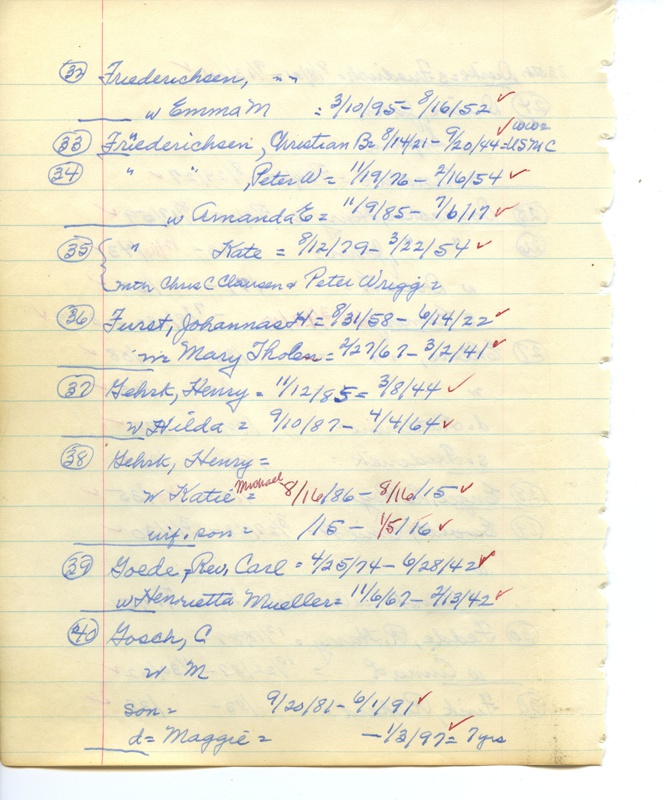 32 Friederichsen, " "
w Emma M = 3/10/95 - 8/16/52 ✓
33 Friederichsen, Christian B = 8/14/21 - 9/20/44 ✓ WW2 = USMC
34 " " , Peter W = 11/19/76 - 2/16/54 ✓
w Amanda E = 11/9/85 - 7/6/17 ✓
35 " Kate = 8/12/79 - 3/22/54 ✓
mth Chris C Clausen & Peter Wrigg =
36 Furst, Johannas H = 8/31/58 - 6/14/22 ✓
w Mary Tholen = 2/27/67 - 3/2/41 ✓
37 Gehrk, Henry = 11/12/85 = 3/8/44 ✓
w Hilda = 9/10/87 - 4/4/64 ✓
38 Gehrk, Henry =
w Katie Michael = 8/16/86 - 8/16/15 ✓
inf. son = /15 - 1/5/16 ✓
39 Goede, Rev, Carl = 4/25/74 - 6/28/42 ✓
w Henrietta Mueller = 11/6/67 - 2/13/42 ✓
40 Gosch, C
w M
son = 9/20/81 - 6/1/91 ✓
d = Maggie = - 1/3/97 ✓ = 7 yrs